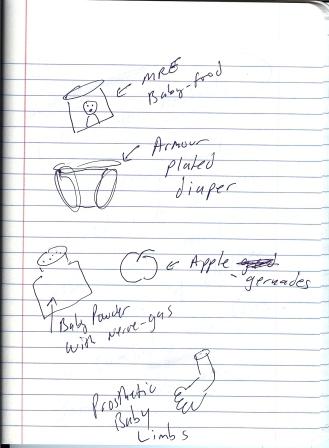 MRE
Baby-food
Armour
plated
diaper
Apple
-gernades
Baby Powder
with nerve-gas
Prosthetic
Baby
Limbs